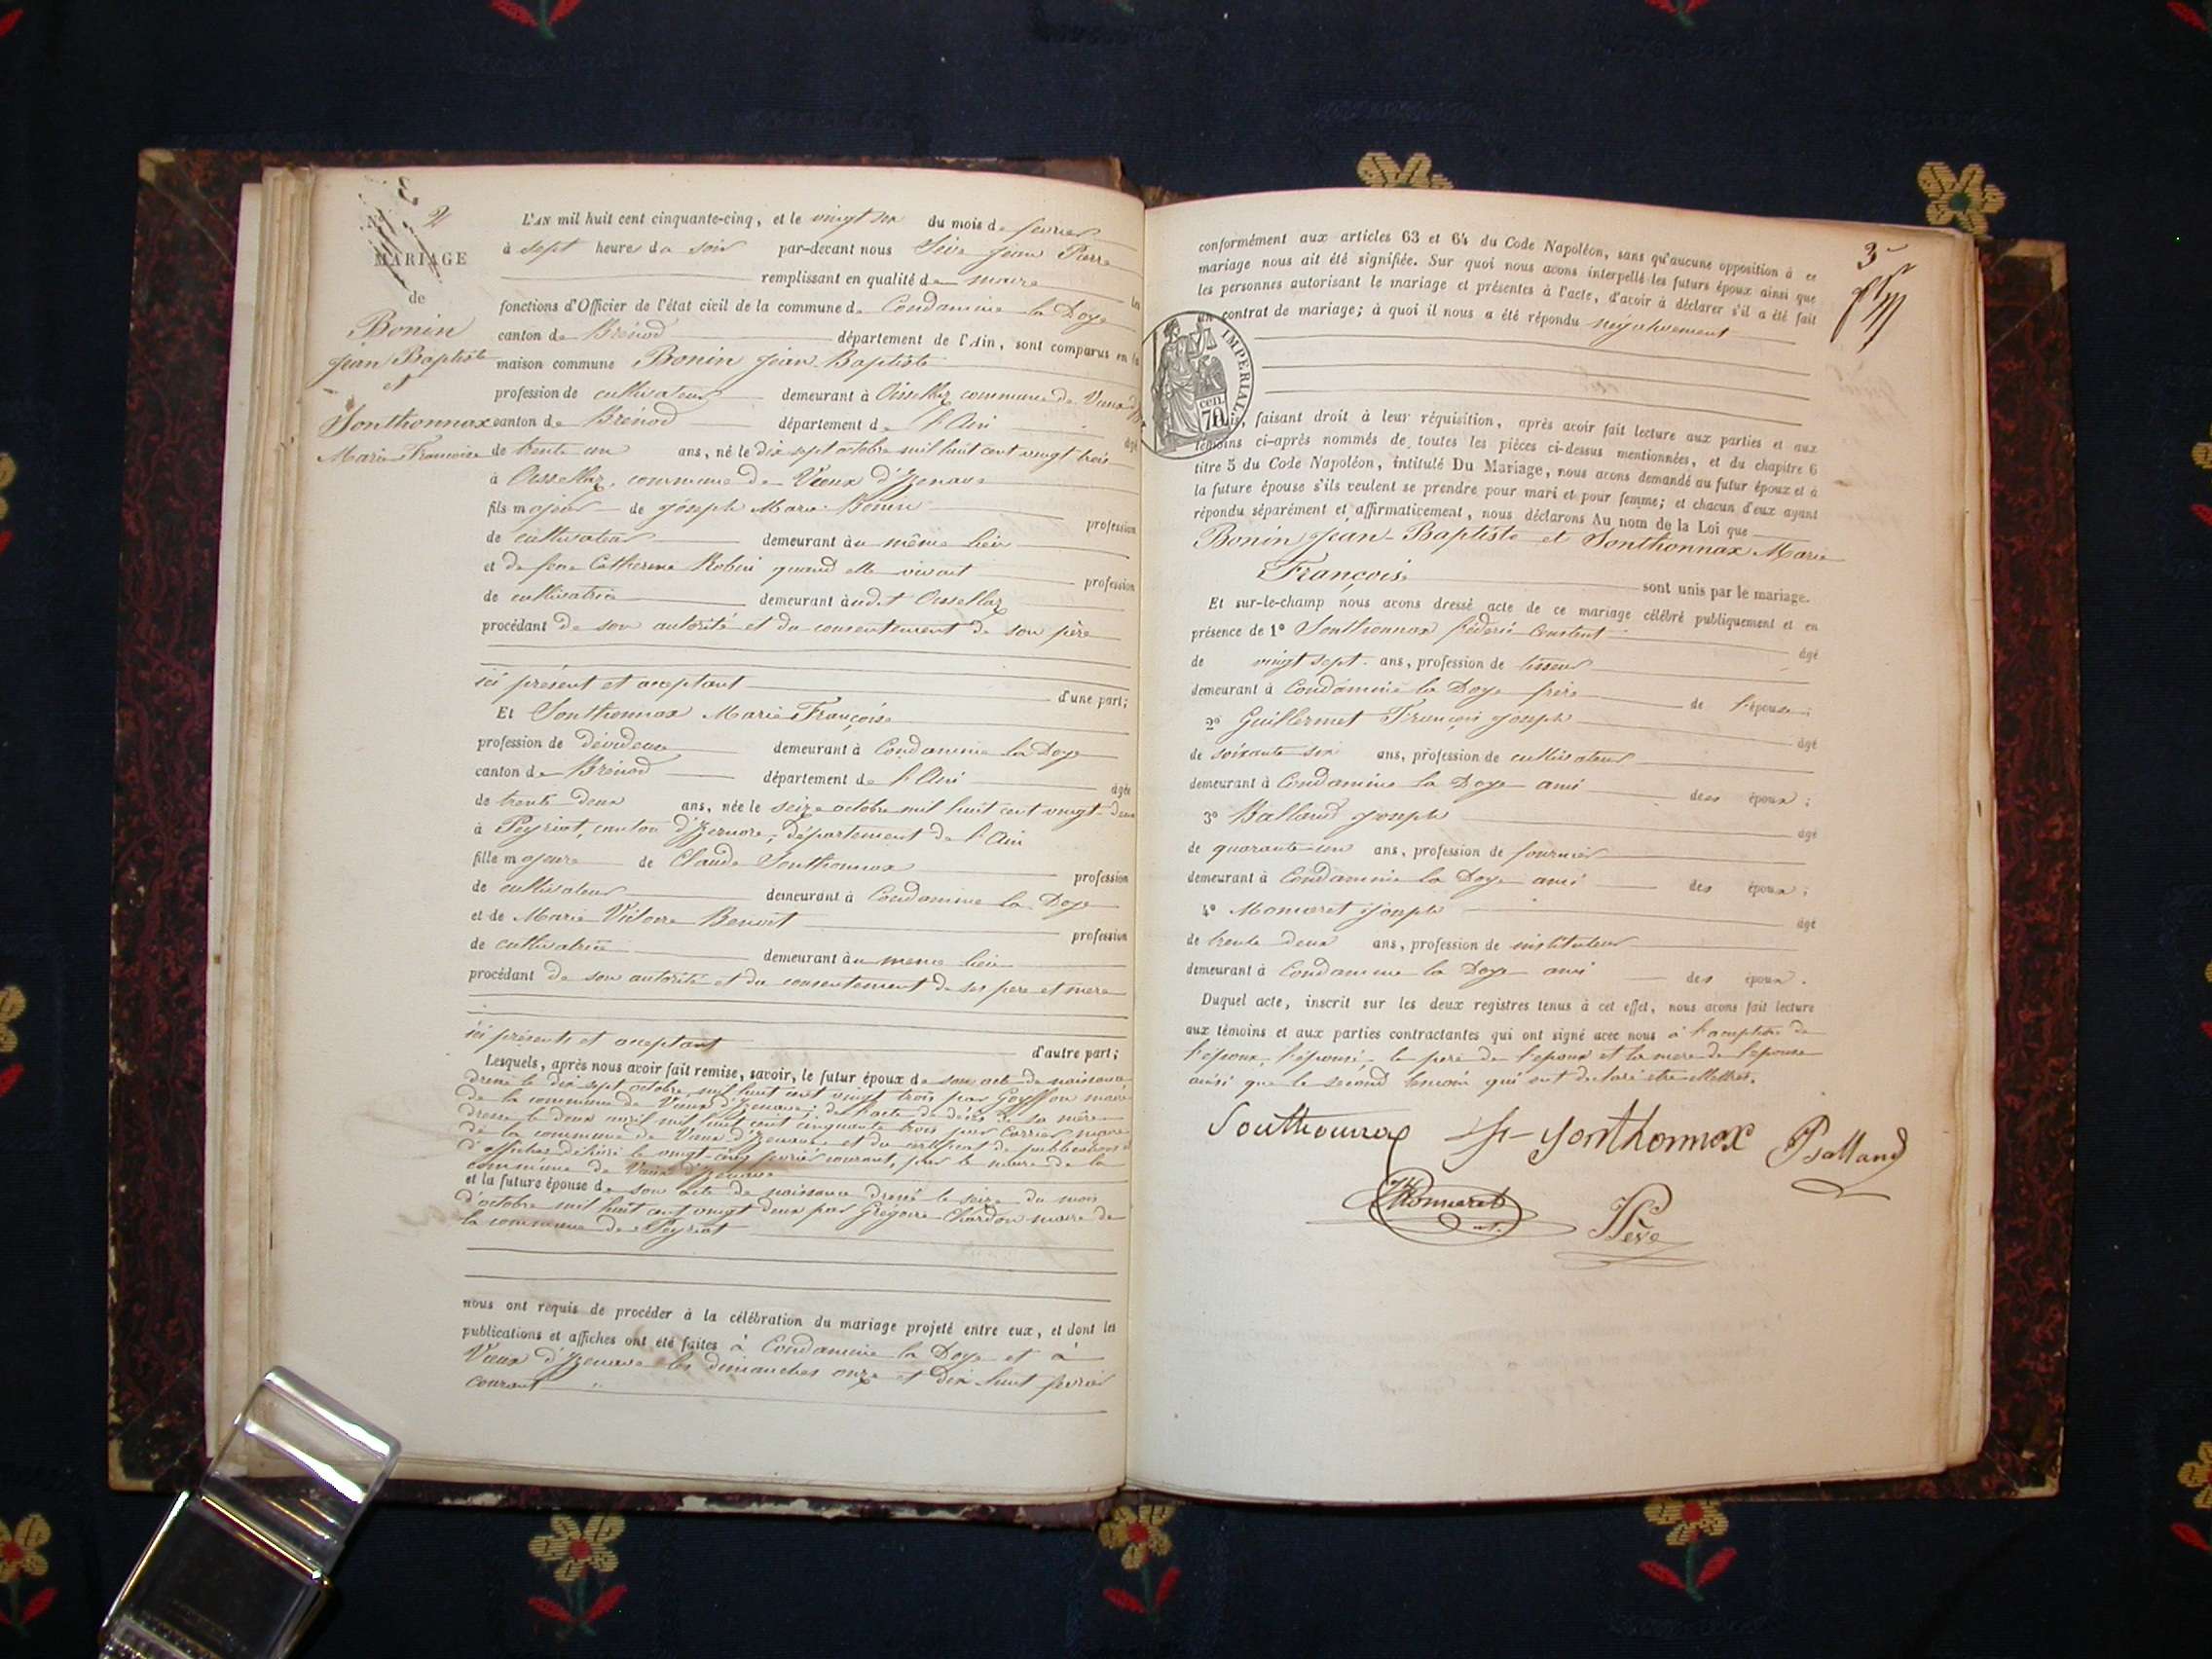 N° 2
MARIAGE
de
Bonin
Jean Baptiste
et
Sonthonnax
Marie Françoise
L'AN mil huit cent cinquante-cinq, et le vingt six du mois de fevrier
à sept heures du soir par-devant nous Sève Jean Pierre
remplissant en qualité de maire les
fonctions d'Officier de l'état civil de la commune de Condamine la Doye
canton de Brénod département de l'Ain, sont comparus en la
maison commune Bonin Jean Baptiste
profession de cultivateur demeurant à Oissellaz commune de Vieux d'Iz
canton de Brénod département de l'Ain âgé
de trente un ans, né le dix sept octobre mil huit cent vingt trois
à Oissellaz, commune de Vieux d'Izenave
fils majeur de Joseph Marie Bonin profession
de cultivateur demeurant au même lieu
et de feue Catherine Robin quand elle vivait profession
de cultivatrice demeurant audit Oissellaz
procédant de son autorité et du consentement de son père
ici présent et acceptant d'une part;
Et Sonthonnax Marie Françoise
profession de dévideuse demeurant à Condamine la Doye
canton de Brénod département de l'Ain âgée
de trente deux ans, née le seize octobre mil huit cent vingt-deux
à Peyriat, canton d'Izernore, département de l'Ain
fille majeure de Claude Sonthonnax profession
de cultivateur demeurant à Condamine la Doye
et de Marie Victoire Benoit profession
de cultivatrice demeurant au meme lieu
procédant de son autorité et du consentement de ses pere et mere
ici présents et acceptant d'autre part;
Lesquels, après nous avoir fait remise, savoir, le futur époux de son acte de naissance
dressé le dix sept octobre mil huit cent vingt trois par Goyffon maire
de la commune de Vieux d'Izenave; de l'acte de décès de sa mère
dressé le deux avril mil huit cent cinquante trois par Carrier maire
de la commune de Vieux d'Izenave et du certificat de publications
d'affiches délivré le vingt-cinq fevrier courant, par le maire de la
commune de Vieux d'Izenave
et la future épouse de son acte de naissance dressé le seize du mois
d'octobre mil huit cent vingt deux par Gregoire Chardon maire de
la commune de Peyriat
nous ont requis de procéder à la célébration du mariage projeté entre eux, et dont les
publications et affiches ont été faites à Condamine la Doye et à
Vieux d'Izenave les dimanches onze et dix huit fevrier
courant
3
conformément aux articles 63 et 64 du Code Napoléon, sans qu'aucune opposition à ce
mariage nous ait été signifiée. Sur quoi nous avons interpellé les futurs époux ainsi que
les personnes autorisant le mariage et présentes à l'acte, d'avoir à déclarer s'il a été fait
un contrat de mariage; à quoi il nous a été répondu négativement
IMPERIAL
70 cen.
faisant droit à leur réquisition, après avoir fait lecture aux parties et aux
témoins ci-après nommés de toutes les pièces ci-dessus mentionnées, et du chapitre 6
titre 5 du Code Napoléon, intitulé Du Mariage, nous avons demandé au futur époux et à
la future épouse s'ils veulent se prendre pour mari et pour femme; et chacun d'eux ayant
répondu séparément et affirmativement, nous déclarons Au nom de la Loi que
Bonin Jean-Baptiste et Sonthonnax Marie
Françoise sont unis par le mariage.
Et sur-le-champ nous avons dressé acte de ce mariage célébré publiquement et en
présence de 1° Sonthonnax féderic Constent âgé
de vingt sept ans, profession de tisseur
demeurant à Condamine la Doye frère de l'épouse;
2° Guillermet François Joseph âgé
de soixante six ans, profession de cultivateur
demeurant à Condamine la Doye ami des époux;
3° Balland Joseph âgé
de quarante-un ans, profession de fournier
demeurant à Condamine la Doye ami des époux;
4° Momaret Joseph âgé
de trente deux ans, profession de instituteur
demeurant à Condamine la Doye ami des époux.
Duquel acte, inscrit sur les deux registres tenus à cet effet, nous avons fait lecture
aux témoins et aux parties contractantes qui ont signé avec nous à l'exception de
l'époux, l'épouse, le pere de l'epoux et la mere de l'epouse
ainsi que le second témoin qui ont declaré etre illettrés.
Sonthonnax Sonthonnax Balland
Momaret Sève